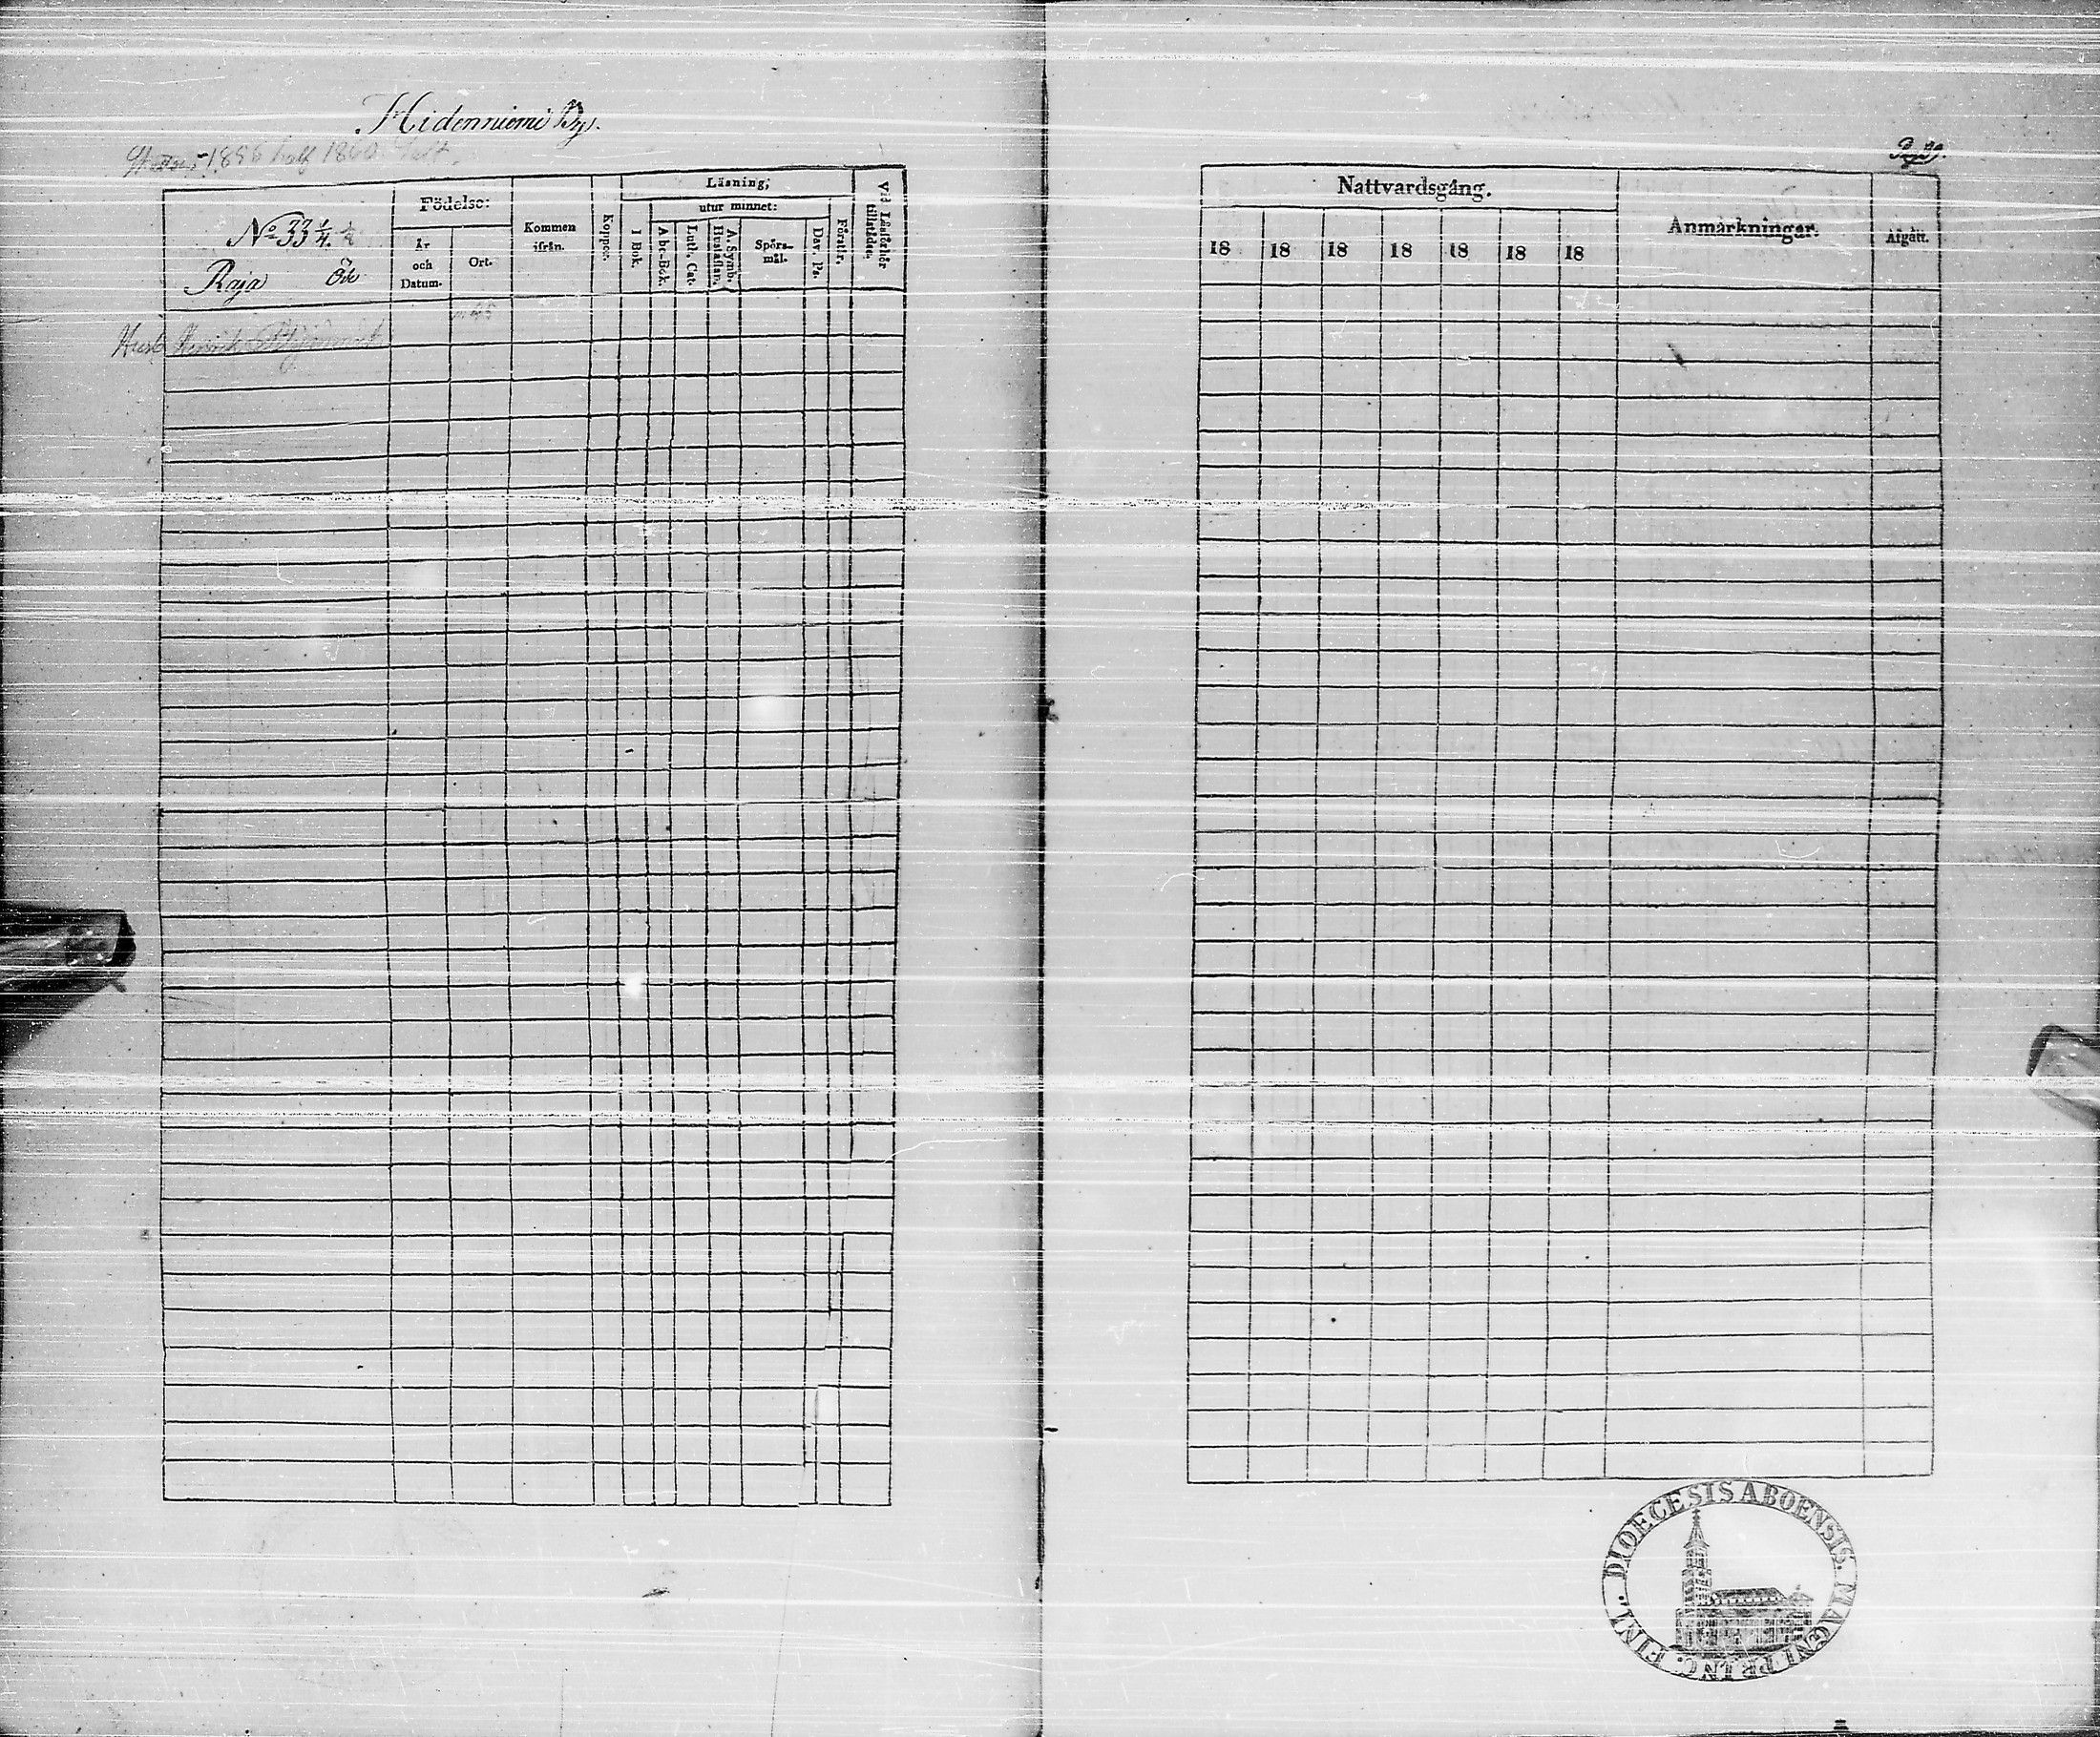 Hidenniemi By.
1856 half 1860
Pag 39.
No 33 1/4. 1/2
Raja Öde
Födelse:
År
och
Datum.
Ort.
Kommen
ifrån.
Koppor.
Läsning;
I Bok.
utur minnet:
Abc-Bok.
Luth. Cat.
A. Symb.
Hustaflan.
Spörs-
mål.
Dav. Ps.
Förstår.
Vid Läseförhör
tillstädes.
Husb Henrik
Nattvardsgång.
18 18 18 18 18 18 18
Anmärkningar.
Afgått.
DIOECESIS ABOENSIS. MAGNI PRINC. FINL.